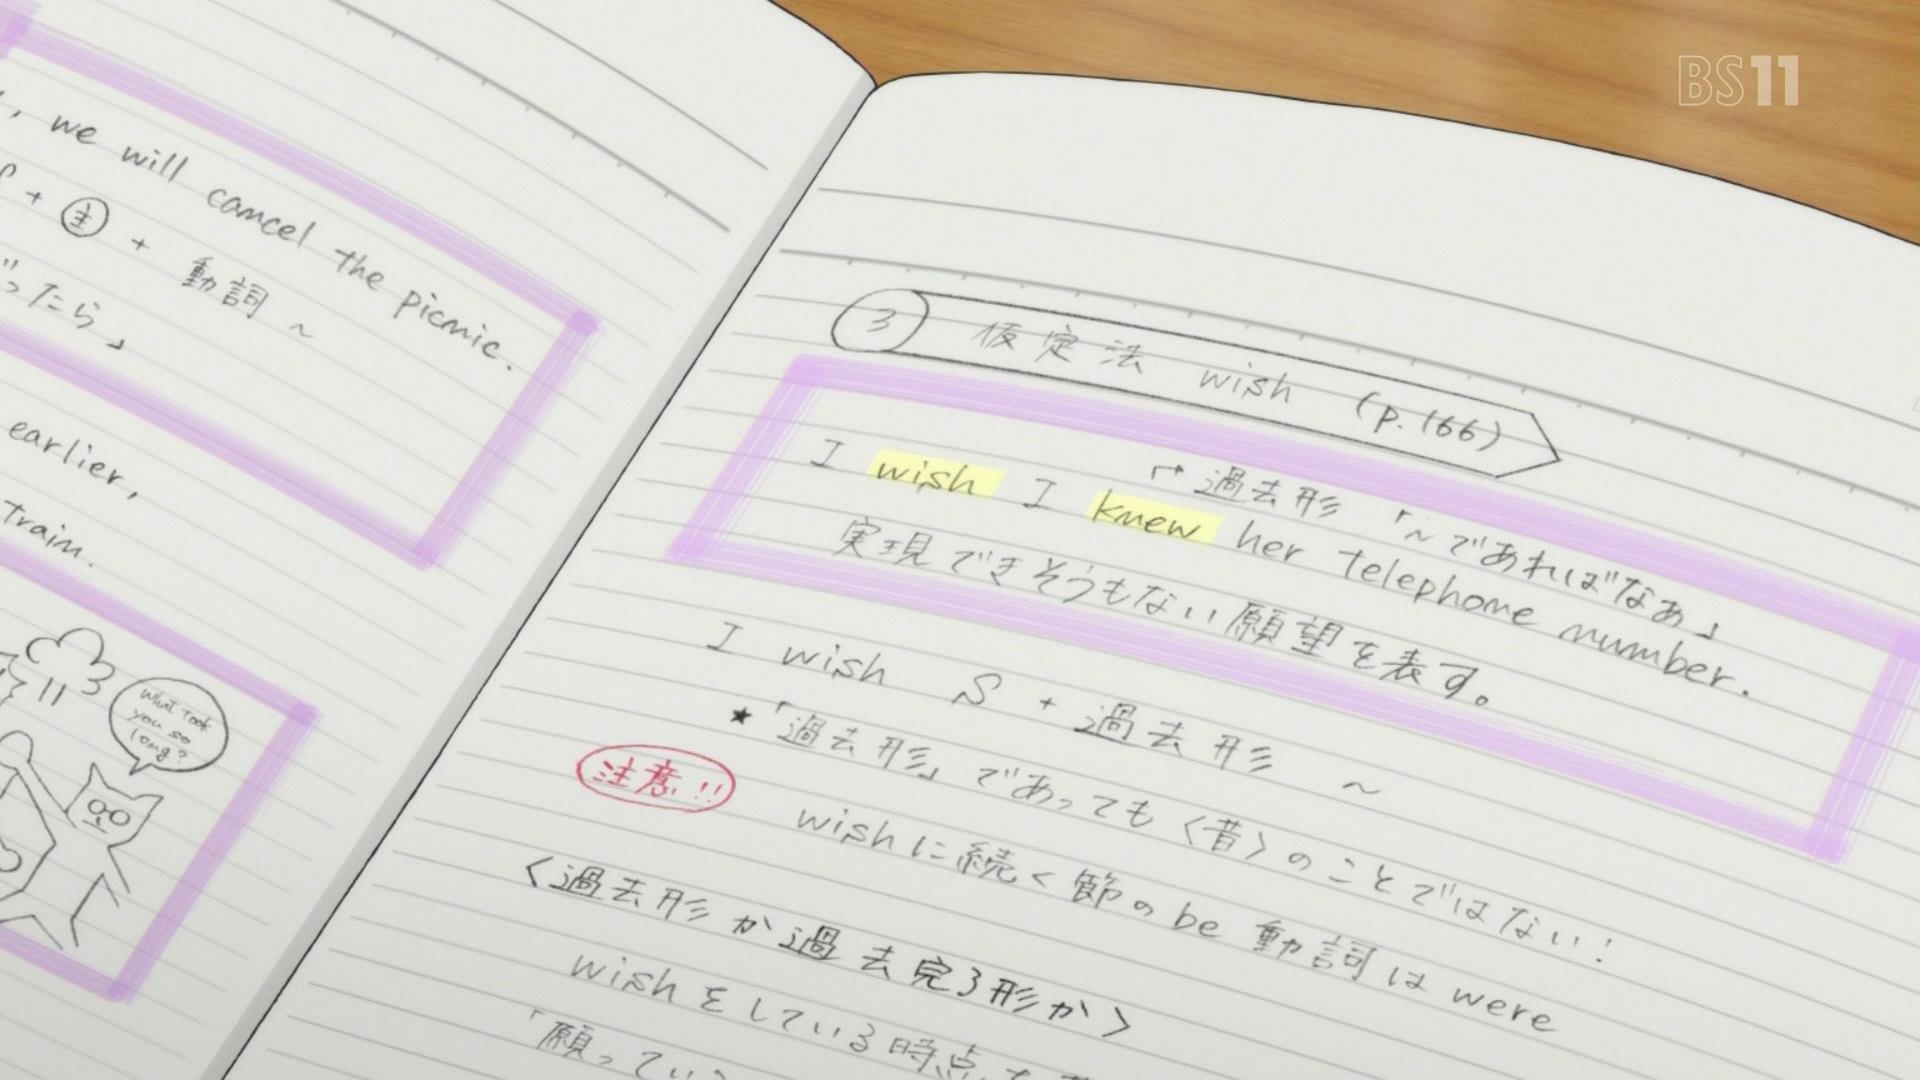 BS11
, we will cancel the picnic.
+ 主 + 動詞 ～
ったら」
earlier,
train.
What took
you so
long?
3 仮定法 wish (p.166)
過去形 「～であればなぁ」
I wish I knew her telephone number.
実現できそうもない願望を表す。
I wish S + 過去形 ～
★「過去形」であっても〈昔〉のことではない!
注意!!
wishに続く節のbe動詞はwere
〈過去形か過去完了形か〉
wishをしている時点
「願ってい